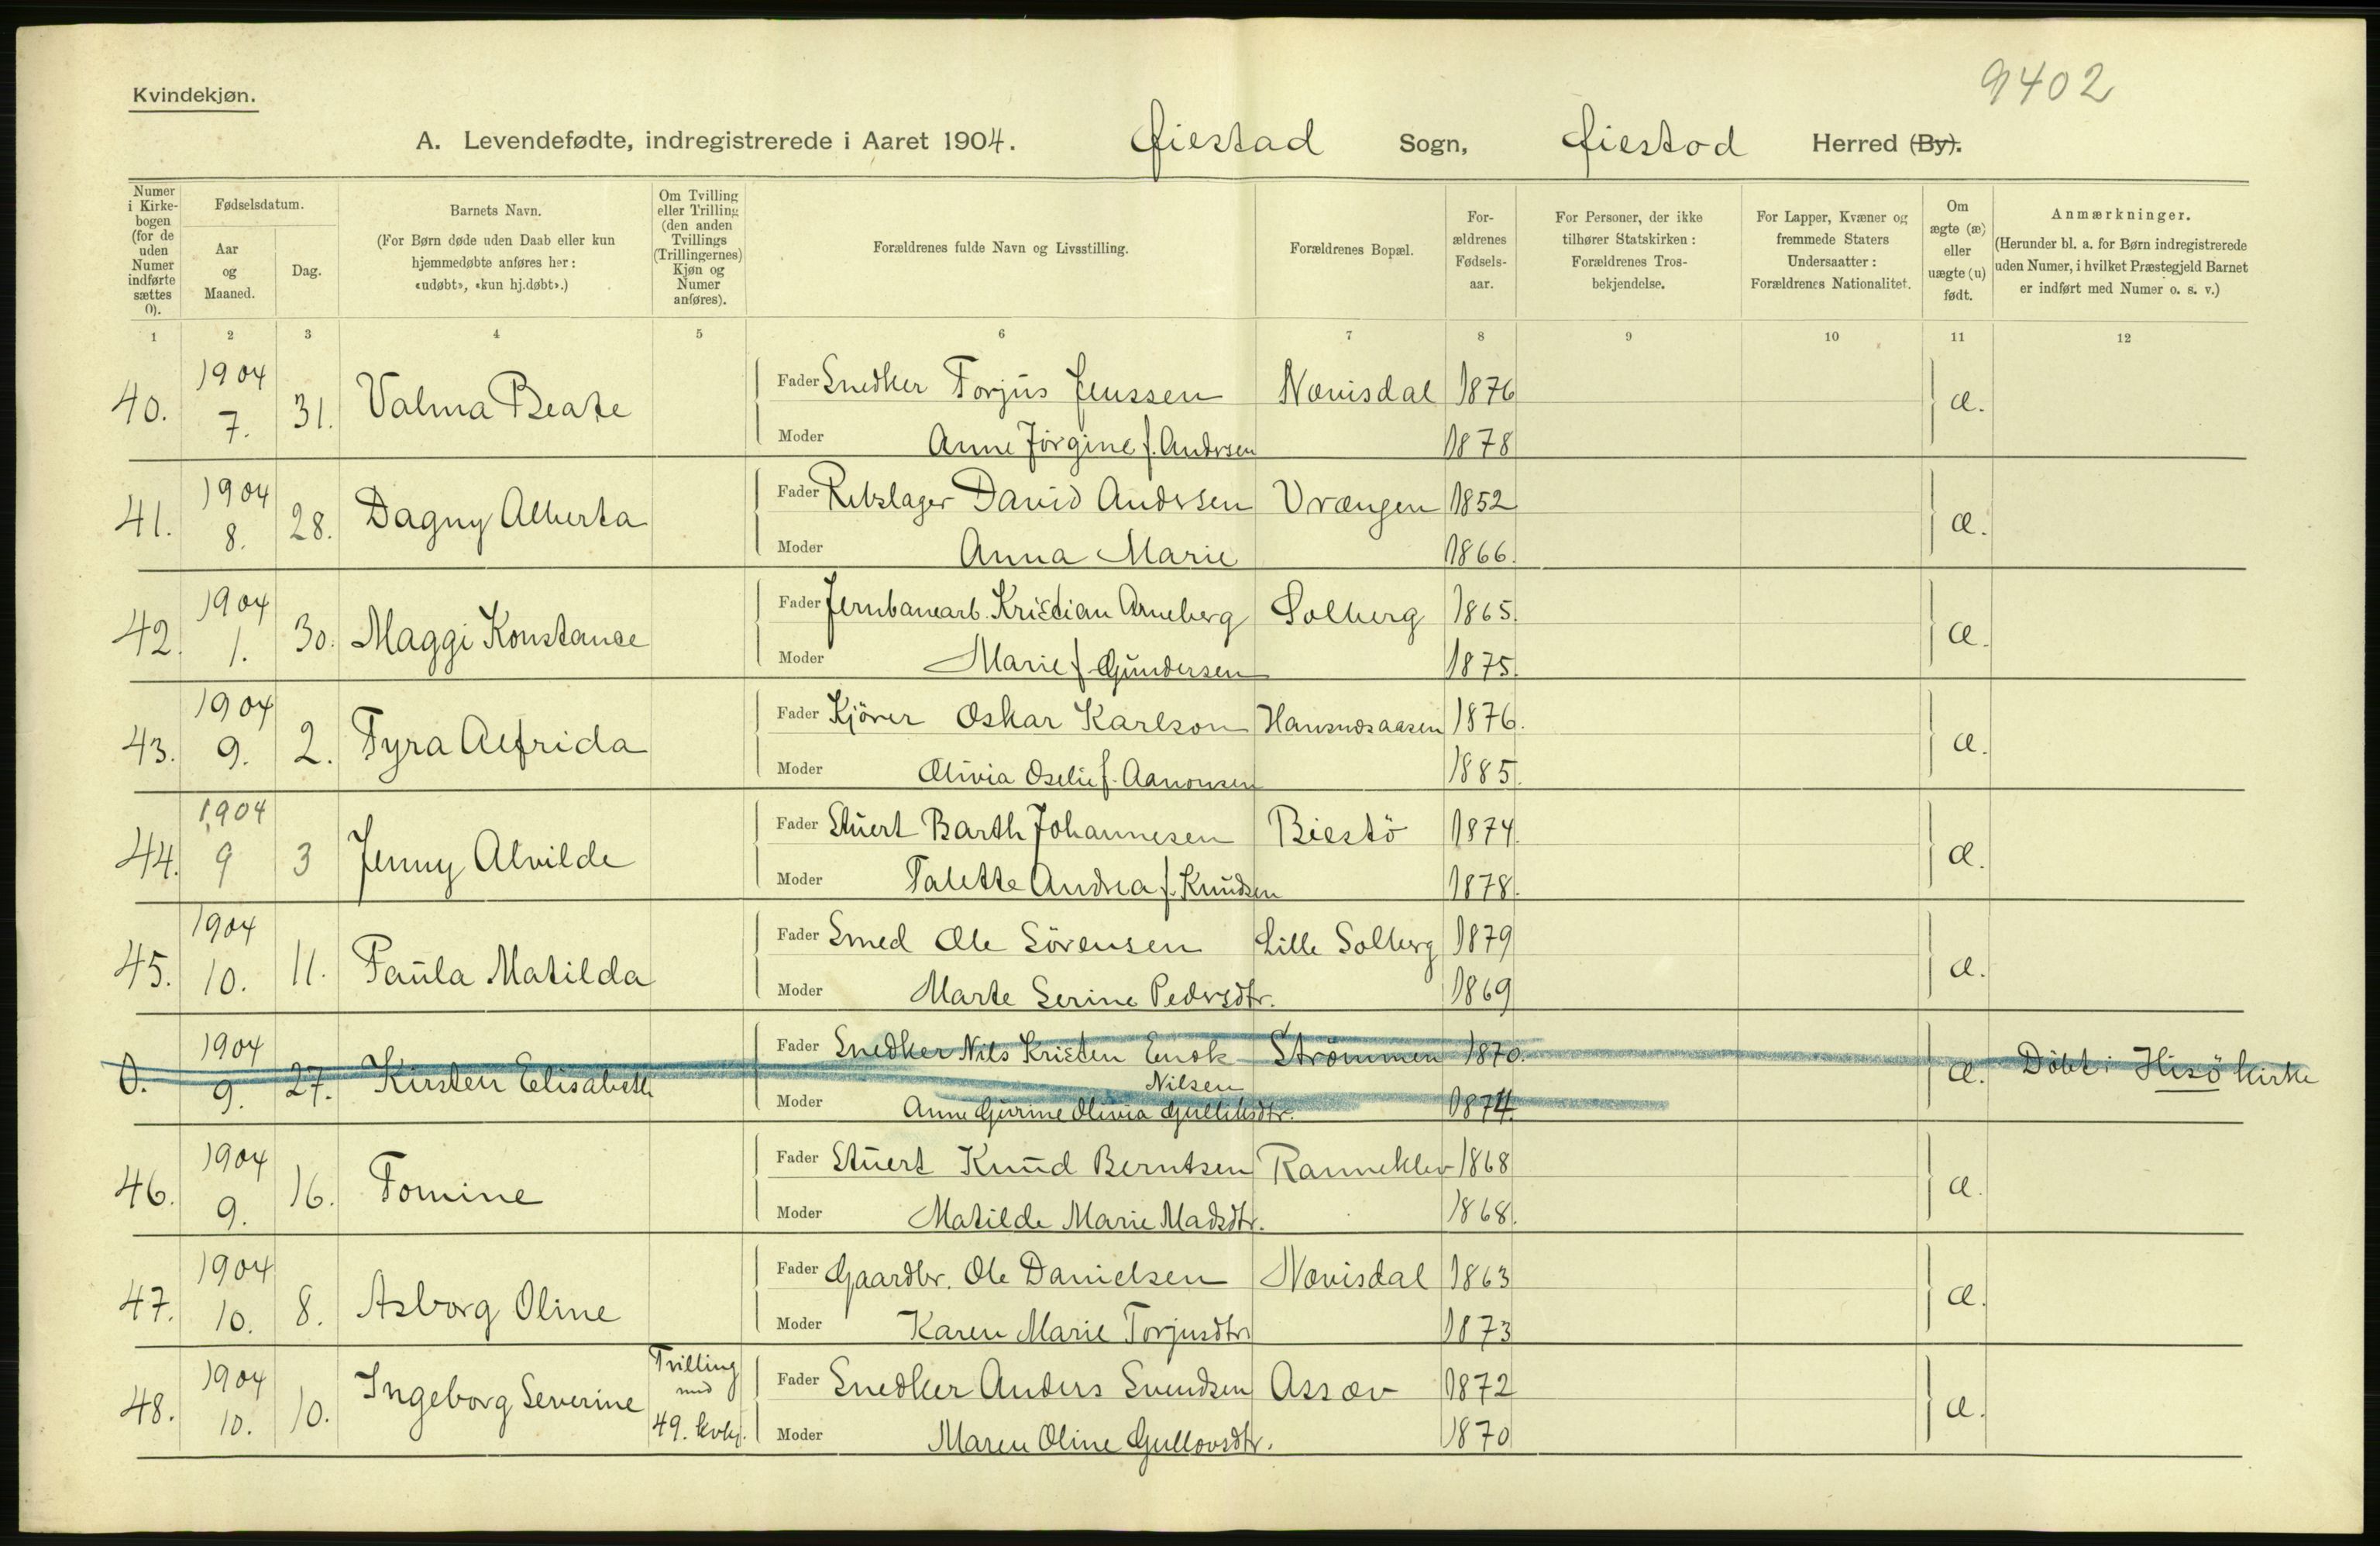 9402
Kvindekjøn.
A. Levendefødte, indregistrerede i Aaret 1904. Øiestad Sogn, Øiestad Herred (By).
Numer i Kirkebogen (for de uden Numer indførte sættes 0).
Fødselsdatum.
Aar og Maaned.
Dag.
Barnets Navn.
(For Børn døde uden Daab eller kun hjemmedøbte anføres her: «udøbt», «kun hj.døbt».)
Om Tvilling eller Trilling (den anden Tvillings (Trillingernes) Kjøn og Numer anføres).
Forældrenes fulde Navn og Livsstilling.
Forældrenes Bopæl.
Forældrenes Fødselsaar.
For Personer, der ikke tilhører Statskirken: Forældrenes Trosbekjendelse.
For Lapper, Kvæner og fremmede Staters Undersaatter: Forældrenes Nationalitet.
Om ægte (æ) eller uægte (u) født.
Anmærkninger.
(Herunder bl. a. for Børn indregistrerede uden Numer, i hvilket Præstegjeld Barnet er indført med Numer o. s. v.)
1 2 3 4 5 6 7 8 9 10 11 12
40. 1904 7. 31. Valma Beate Fader Snedker Torjus Jenssen Nævisdal 1876 æ.
Moder Anne Jörgine f. Andersen 1878
41. 1904 8. 28. Dagny Alberta Fader Rebslager David Andersen Vrængen 1852 æ.
Moder Anna Marie 1866.
42. 1904 1. 30. Maggi Konstance Fader Jernbanearb. Kristian Arneberg Solberg 1865. æ.
Moder Marie f. Gundersen 1875.
43. 1904 9. 2. Tyra Alfrida Fader Kjörer Oskar Karlson Hansnesaasen 1876. æ.
Moder Olivia Oselie f. Aanonsen 1885.
44. 1904 9 3 Jenny Alvilde Fader Stuert Barth Johannesen Biestö 1874. æ.
Moder Talette Andrea f. Knudsen 1878.
45. 1904 10. 11. Paula Matilda Fader Smed Ole Sörensen Lille Solberg 1879 æ.
Moder Marte Serine Pedersdtr. 1869
0. 1904 9. 27. Kirsten Elisabeth Fader Snedker Nils Kristen Enok Nilsen Strömmen 1870. æ. Döbt i Hisö kirke
Moder Anne Gurine Olivia Gulliksdtr. 1874
46. 1904 9. 16. Tomine Fader Stuert Knud Berntsen Ranneklev 1868 æ.
Moder Matilde Marie Madsdtr. 1868.
47. 1904 10. 8. Asborg Oline Fader Gaardbr. Ole Danielsen Nævisdal 1863 æ.
Moder Karen Marie Torjusdtr 1873
48. 1904 10. 10. Ingeborg Severine Tvilling med 49. kvkj. Fader Snedker Anders Svendsen Assæv 1872 æ.
Moder Maren Oline Gullovsdtr. 1870